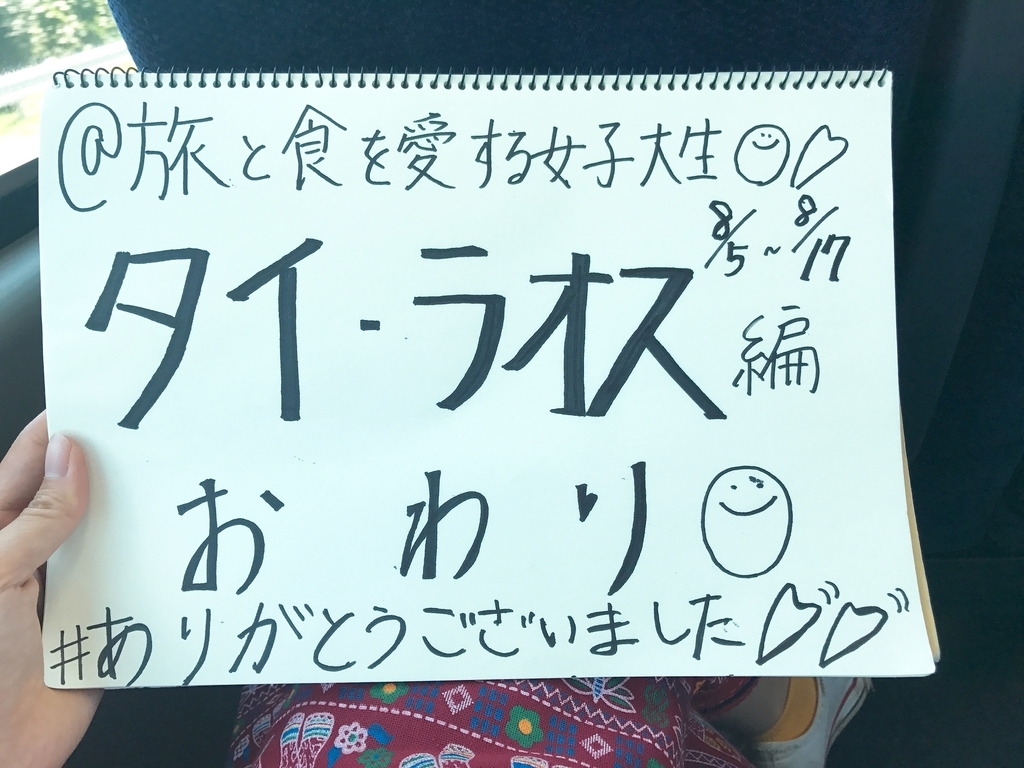 @旅と食を愛する女子大生
8/5~8/17
タイ・ラオス編
おわり
#ありがとうございました